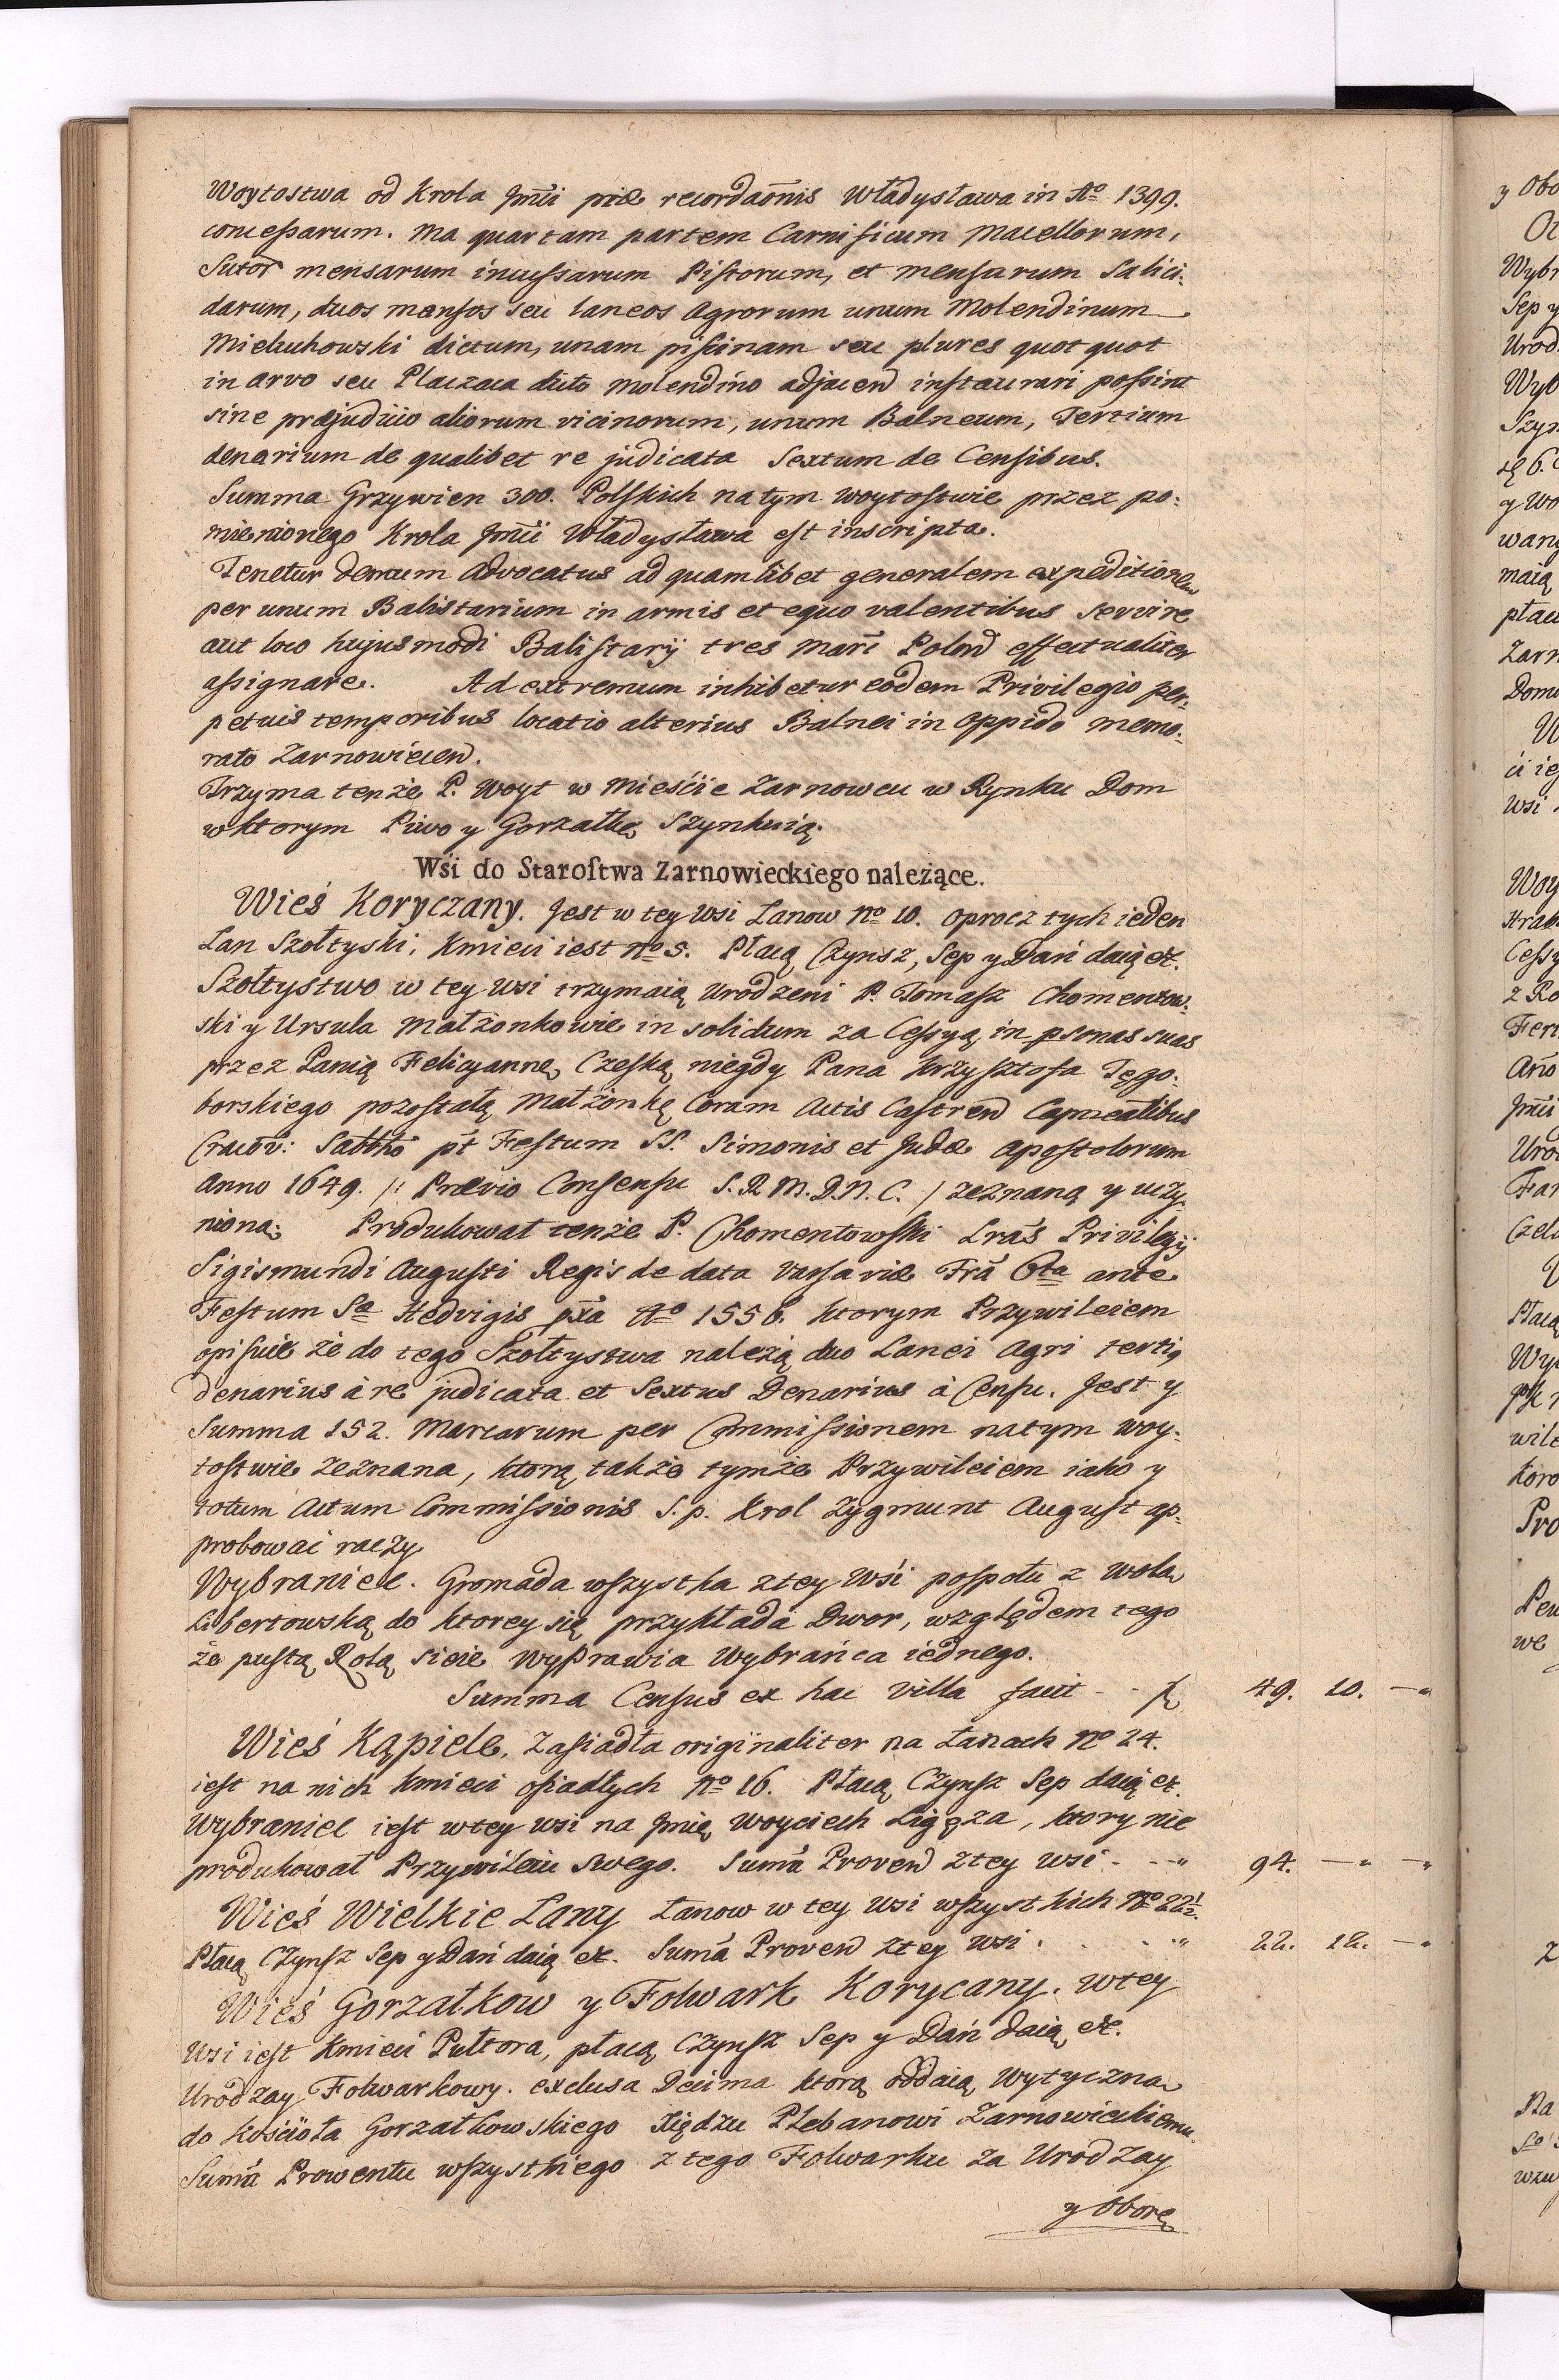 Woytostwa od Krola Jmci piæ recordaõnis Władysława in Aº 1399.
concessarum. Ma quartam partem Carnificum Macellorum,
Sutor mensarum incussarum Pistorum, et mensarum Salici-
darum, duos mansos seu laneos Agrorum unum Molendinum
Miechuhowski dictum, unam piscinam seu plures quot quot
in arvo seu Placzaca dicto Molendino adjacen instaurari possint
sine præjudicio aliorum vicinorum, unum Balneum, Tertium
denarium de qualibet re judicata Sextum de Censibus.
Summa Grzywien 300. Polskich na tym woytostwie przez po-
mienionego Krola Jmci Władysława est inscripta.
Tenetur demum Advocatus ad quamlibet generalem expeditionem
per unum Balistarium in armis et equo valentibus servire
aut loco hujusmodi Balistarij tres Marc Polon effectualiter
assignare. Ad extremum inhibetur eodem Privilegio per-
petuis temporibus locatio alterius Balnei in oppido memo-
rato Zarnowiecen.
Trzyma tenże P. Woyt w Mieście Zarnowcu w Rynku Dom
w ktorym Piwo y Gorzałkę Szynkuią.
Wśi do Starostwa Zarnowieckiego należące.
Wieś Koryczany. Jest w tey Wsi Lanow Nº 10. oprocz tych ieden
Lan Szołtyski, Kmieci iest Nº 5. Płacą Czynsz, Sep y Dań daią etc.
Szołtystwo w tey Wsi trzymaią Urodzeni P. Tomasz Chomentow-
ski y Ursula Małżonkowie in solidum za Cessyą in psonas suas
przez Panią Felicyannę Czeską niegdy Pana Krzysztofa Tęgo-
borskiego pozostałą Małżonkę Coram Actis Castren Capitealibus
Cracov: Sabbto pt Festum SS. Simonis et Judæ Apostolorum
Anno 1649. /: Prævio Consensu S. R. M. D. N. C. / zeznaną y uczy-
nioną. Produkował tenże P. Chomentowski Lras Privilegij
Sigismundi Augusti Regis de data Varsaviæ Fra 6ta ante
Festum Sæ Hedvigis pxa Aº 1556. ktorym Przywileiem
opisuie że do tego Szołtystwa należą duo Lanei Agri tertiq
denarius à re judicata et Sextus Denarius à Censu. Jest y
Summa 152. Marcarum per Commissionem na tym Woy-
tostwie zeznana, ktorą także tymże Przywileiem iako y
totum Actum Commissionis S. p. Krol Zygmunt August ap-
probowac raczy
Wybraniec. Gromada wszystka z tey Wśi pospołu z Wolą
Libertowską do ktorey się przykłada Dwor, względem tego
że pustą Rolą sieie Wyprawia Wybrańca iednego.
Summa Census ex hac villa facit - - f 49. 10. —"
Wieś Kąpiele, Zasiadła originaliter na Łanach Nº 24.
iest na nich Kmieci osiadłych Nº 16. Płacą Czynsz Sep daią etc.
Wybraniec iest w tey wsi na Jmię Woyciech Ligęza, ktory nie
produkował Przywileiu swego. Suma Proven z tey wsi - - -" 94. —" —"
Wieś Wielkie Lany Łanow w tey Wsi wszystkich Nº 22½.
Płacą Czynsz Sep y Dań daią etc. Suma Proven z tey wsi . . . " 22. 12. —"
Wieś Gorzałkow y Folwark Korycany. w tey
Wsi iest Kmieci Pułtora, płacą Czynsz Sep y Dań daią etc.
Urodzay Folwarkowy. exclusa Decima ktorą oddaią Wytyczną
do Kościoła Gorzałkowskiego Xiędzu Plebanowi Zarnowieckiemu.
Suma Prowentu wszystkiego z tego Folwarku za Urodzay
y Oborę